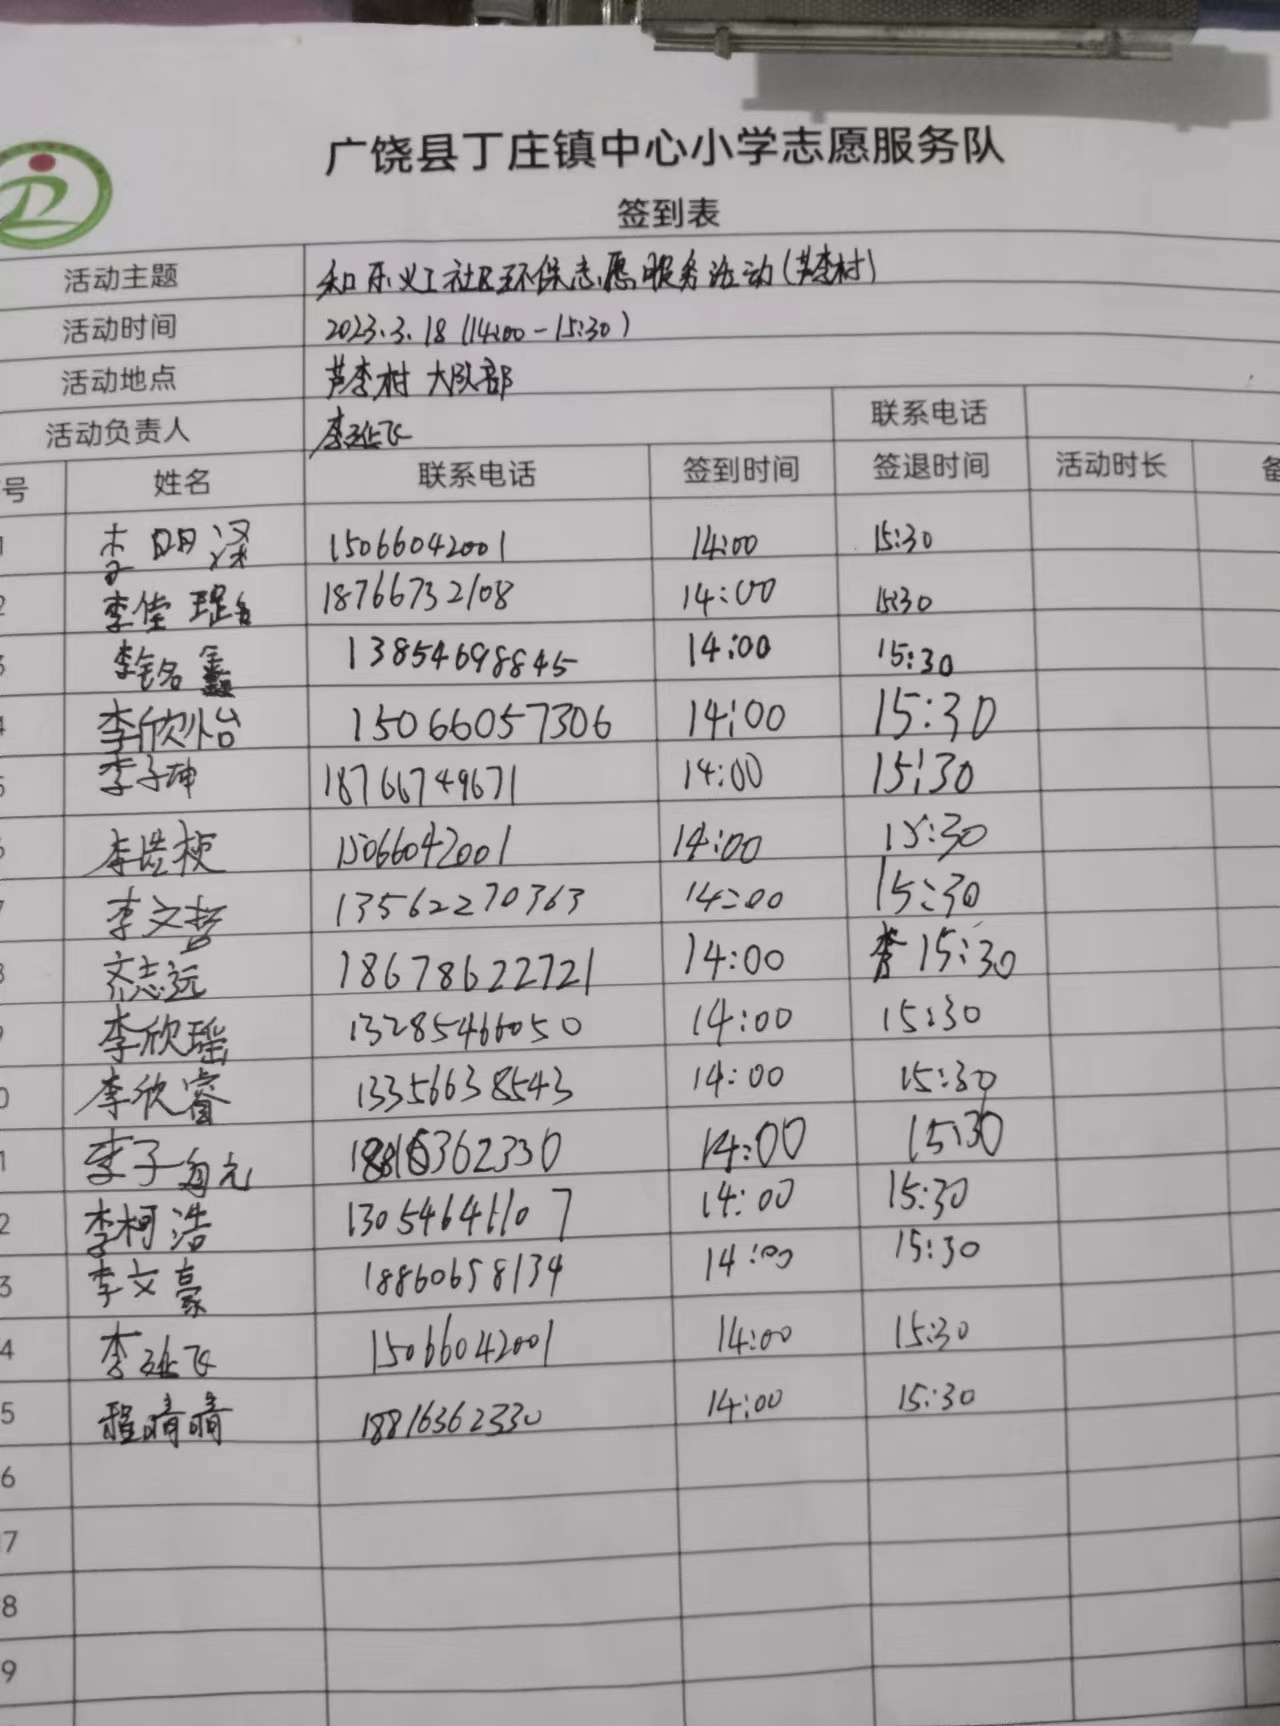 广饶县丁庄镇中心小学志愿服务队
签到表
活动主题 和乐义工社区环保志愿服务活动(芦李村)
活动时间 2023.3.18 (14:00-15:30)
活动地点 芦李村 大队部
活动负责人 李延飞 联系电话
号 姓名 联系电话 签到时间 签退时间 活动时长 备
1 李明泽 15066042001 14:00 15:30
2 李佳 18766732108 14:00 15:30
3 李铭鑫 13854698845 14:00 15:30
4 李欣怡 15066057306 14:00 15:30
5 李子坤 18766749671 14:00 15:30
6 李浩梗 15066042001 14:00 15:30
7 李文哲 13562270363 14:00 15:30
8 齐志远 18678622721 14:00 15:30
9 李欣瑶 13285466050 14:00 15:30
0 李欣睿 13356638543 14:00 15:30
1 李子 18816362330 14:00 15:30
2 李柯浩 13054641107 14:00 15:30
3 李文豪 18860658134 14:00 15:30
4 李延飞 15066042001 14:00 15:30
5 程晴晴 18816362330 14:00 15:30
6
7
8
9